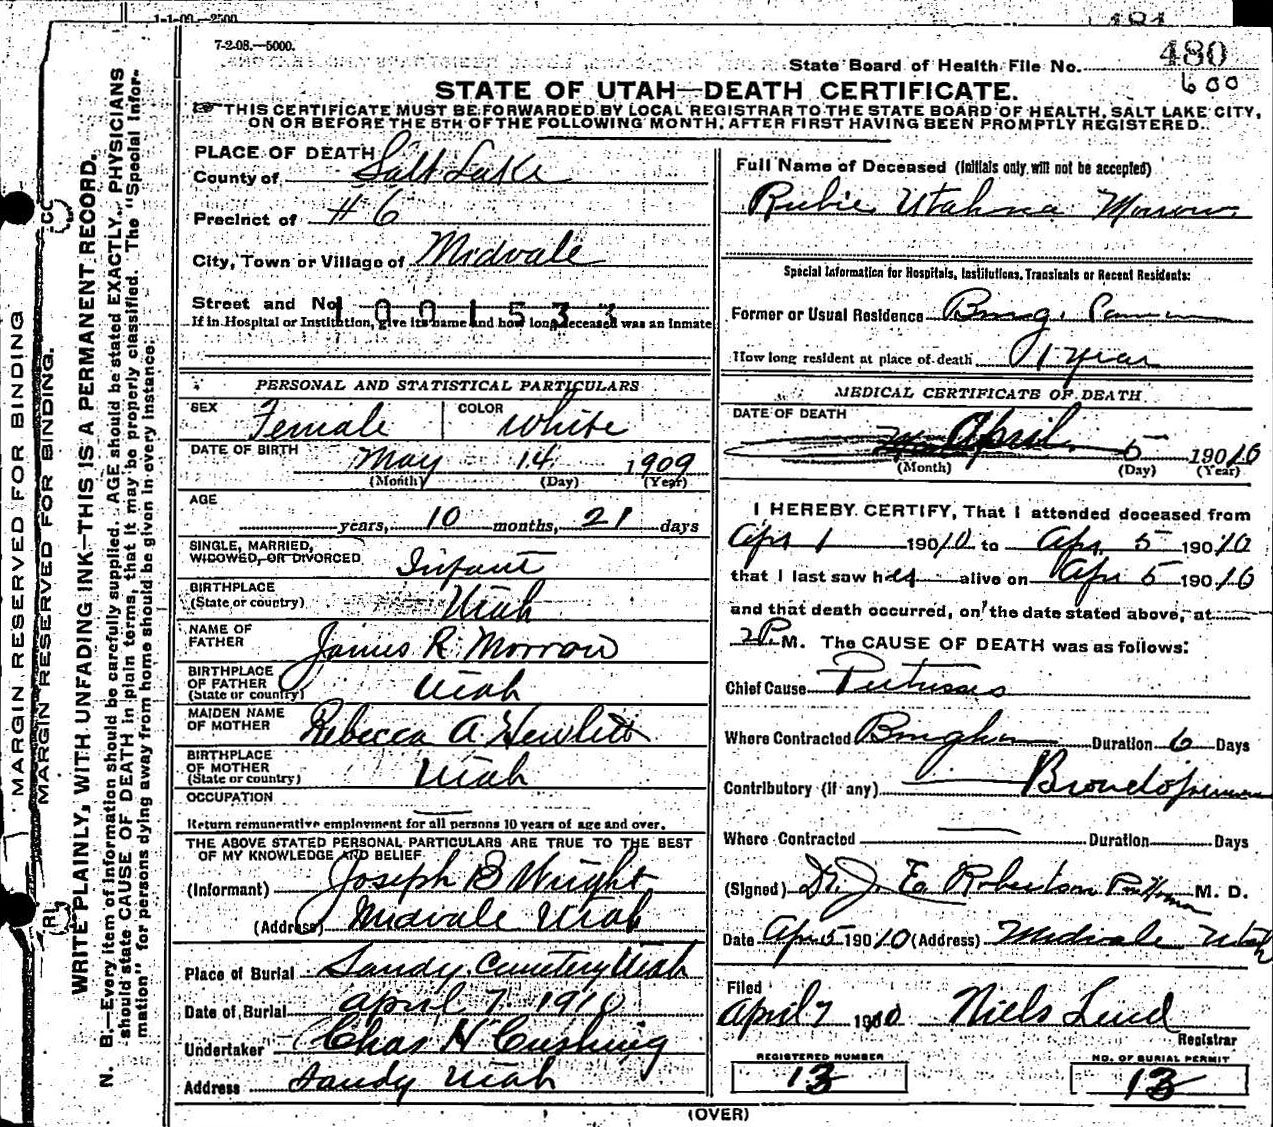 1-1-09.—2500
7-2-08.—5000.
State Board of Health File No. 480
600
STATE OF UTAH—DEATH CERTIFICATE.
THIS CERTIFICATE MUST BE FORWARDED BY LOCAL REGISTRAR TO THE STATE BOARD OF HEALTH, SALT LAKE CITY,
ON OR BEFORE THE 5TH OF THE FOLLOWING MONTH, AFTER FIRST HAVING BEEN PROMPTLY REGISTERED.
MARGIN RESERVED FOR BINDING
MARGIN RESERVED FOR BINDING.
WRITE PLAINLY, WITH UNFADING INK—THIS IS A PERMANENT RECORD.
N. B.—Every item of information should be carefully supplied. AGE should be stated EXACTLY. PHYSICIANS
should state CAUSE OF DEATH in plain terms, that it may be properly classified. The "Special Infor-
mation" for persons dying away from home should be given in every instance.
PLACE OF DEATH
County of Salt Lake
Precinct of # 6
City, Town or Village of Midvale
Street and No. 1001533
If in Hospital or Institution, give its name and how long deceased was an inmate
PERSONAL AND STATISTICAL PARTICULARS
SEX Female COLOR White
DATE OF BIRTH May 14 1909
(Month) (Day) (Year)
AGE
years, 10 months, 21 days
SINGLE, MARRIED,
WIDOWED, OR DIVORCED Infant
BIRTHPLACE
(State or country) Utah
NAME OF
FATHER James R. Morrow
BIRTHPLACE
OF FATHER
(State or country) Utah
MAIDEN NAME
OF MOTHER Rebecca A. Hewlett
BIRTHPLACE
OF MOTHER
(State or country) Utah
OCCUPATION
Return remunerative employment for all persons 10 years of age and over.
THE ABOVE STATED PERSONAL PARTICULARS ARE TRUE TO THE BEST
OF MY KNOWLEDGE AND BELIEF
(Informant) Joseph B Wright
(Address) Midvale Utah
Place of Burial Sandy Cemetery Utah
Date of Burial April 7 1910
Undertaker Chas H Cushing
Address Sandy Utah
Full Name of Deceased (Initials only will not be accepted)
Rubie Utahna Morrow
Special Information for Hospitals, Institutions, Transients or Recent Residents:
Former or Usual Residence Bing.
How long resident at place of death 1 year
MEDICAL CERTIFICATE OF DEATH
DATE OF DEATH
April 5 19010
(Month) (Day) (Year)
I HEREBY CERTIFY, That I attended deceased from
Apr 1 19010 to Apr. 5 19010
that I last saw her alive on Apr 5 19010
and that death occurred, on the date stated above, at
2 P. M. The CAUSE OF DEATH was as follows:
Chief Cause Pertussis
Where Contracted Bingham Duration 6 Days
Contributory (if any)
Where Contracted Duration Days
(Signed) Dr. J. E. Robertson M. D.
Date Apr 5 19010 (Address) Midvale Utah
Filed
April 7 1910 Niels Lind
Registrar
REGISTERED NUMBER
13
NO. OF BURIAL PERMIT
13
(OVER)